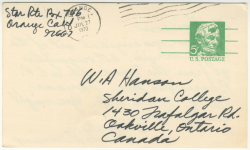 Star Rte Box 706
Orange Cal
92667
PM
JUL 27
5¢
U.S. POSTAGE
W.A. Hanson
Sheridan College
1430 Trafalgar Rd.
Oakville, Ontario
Canada